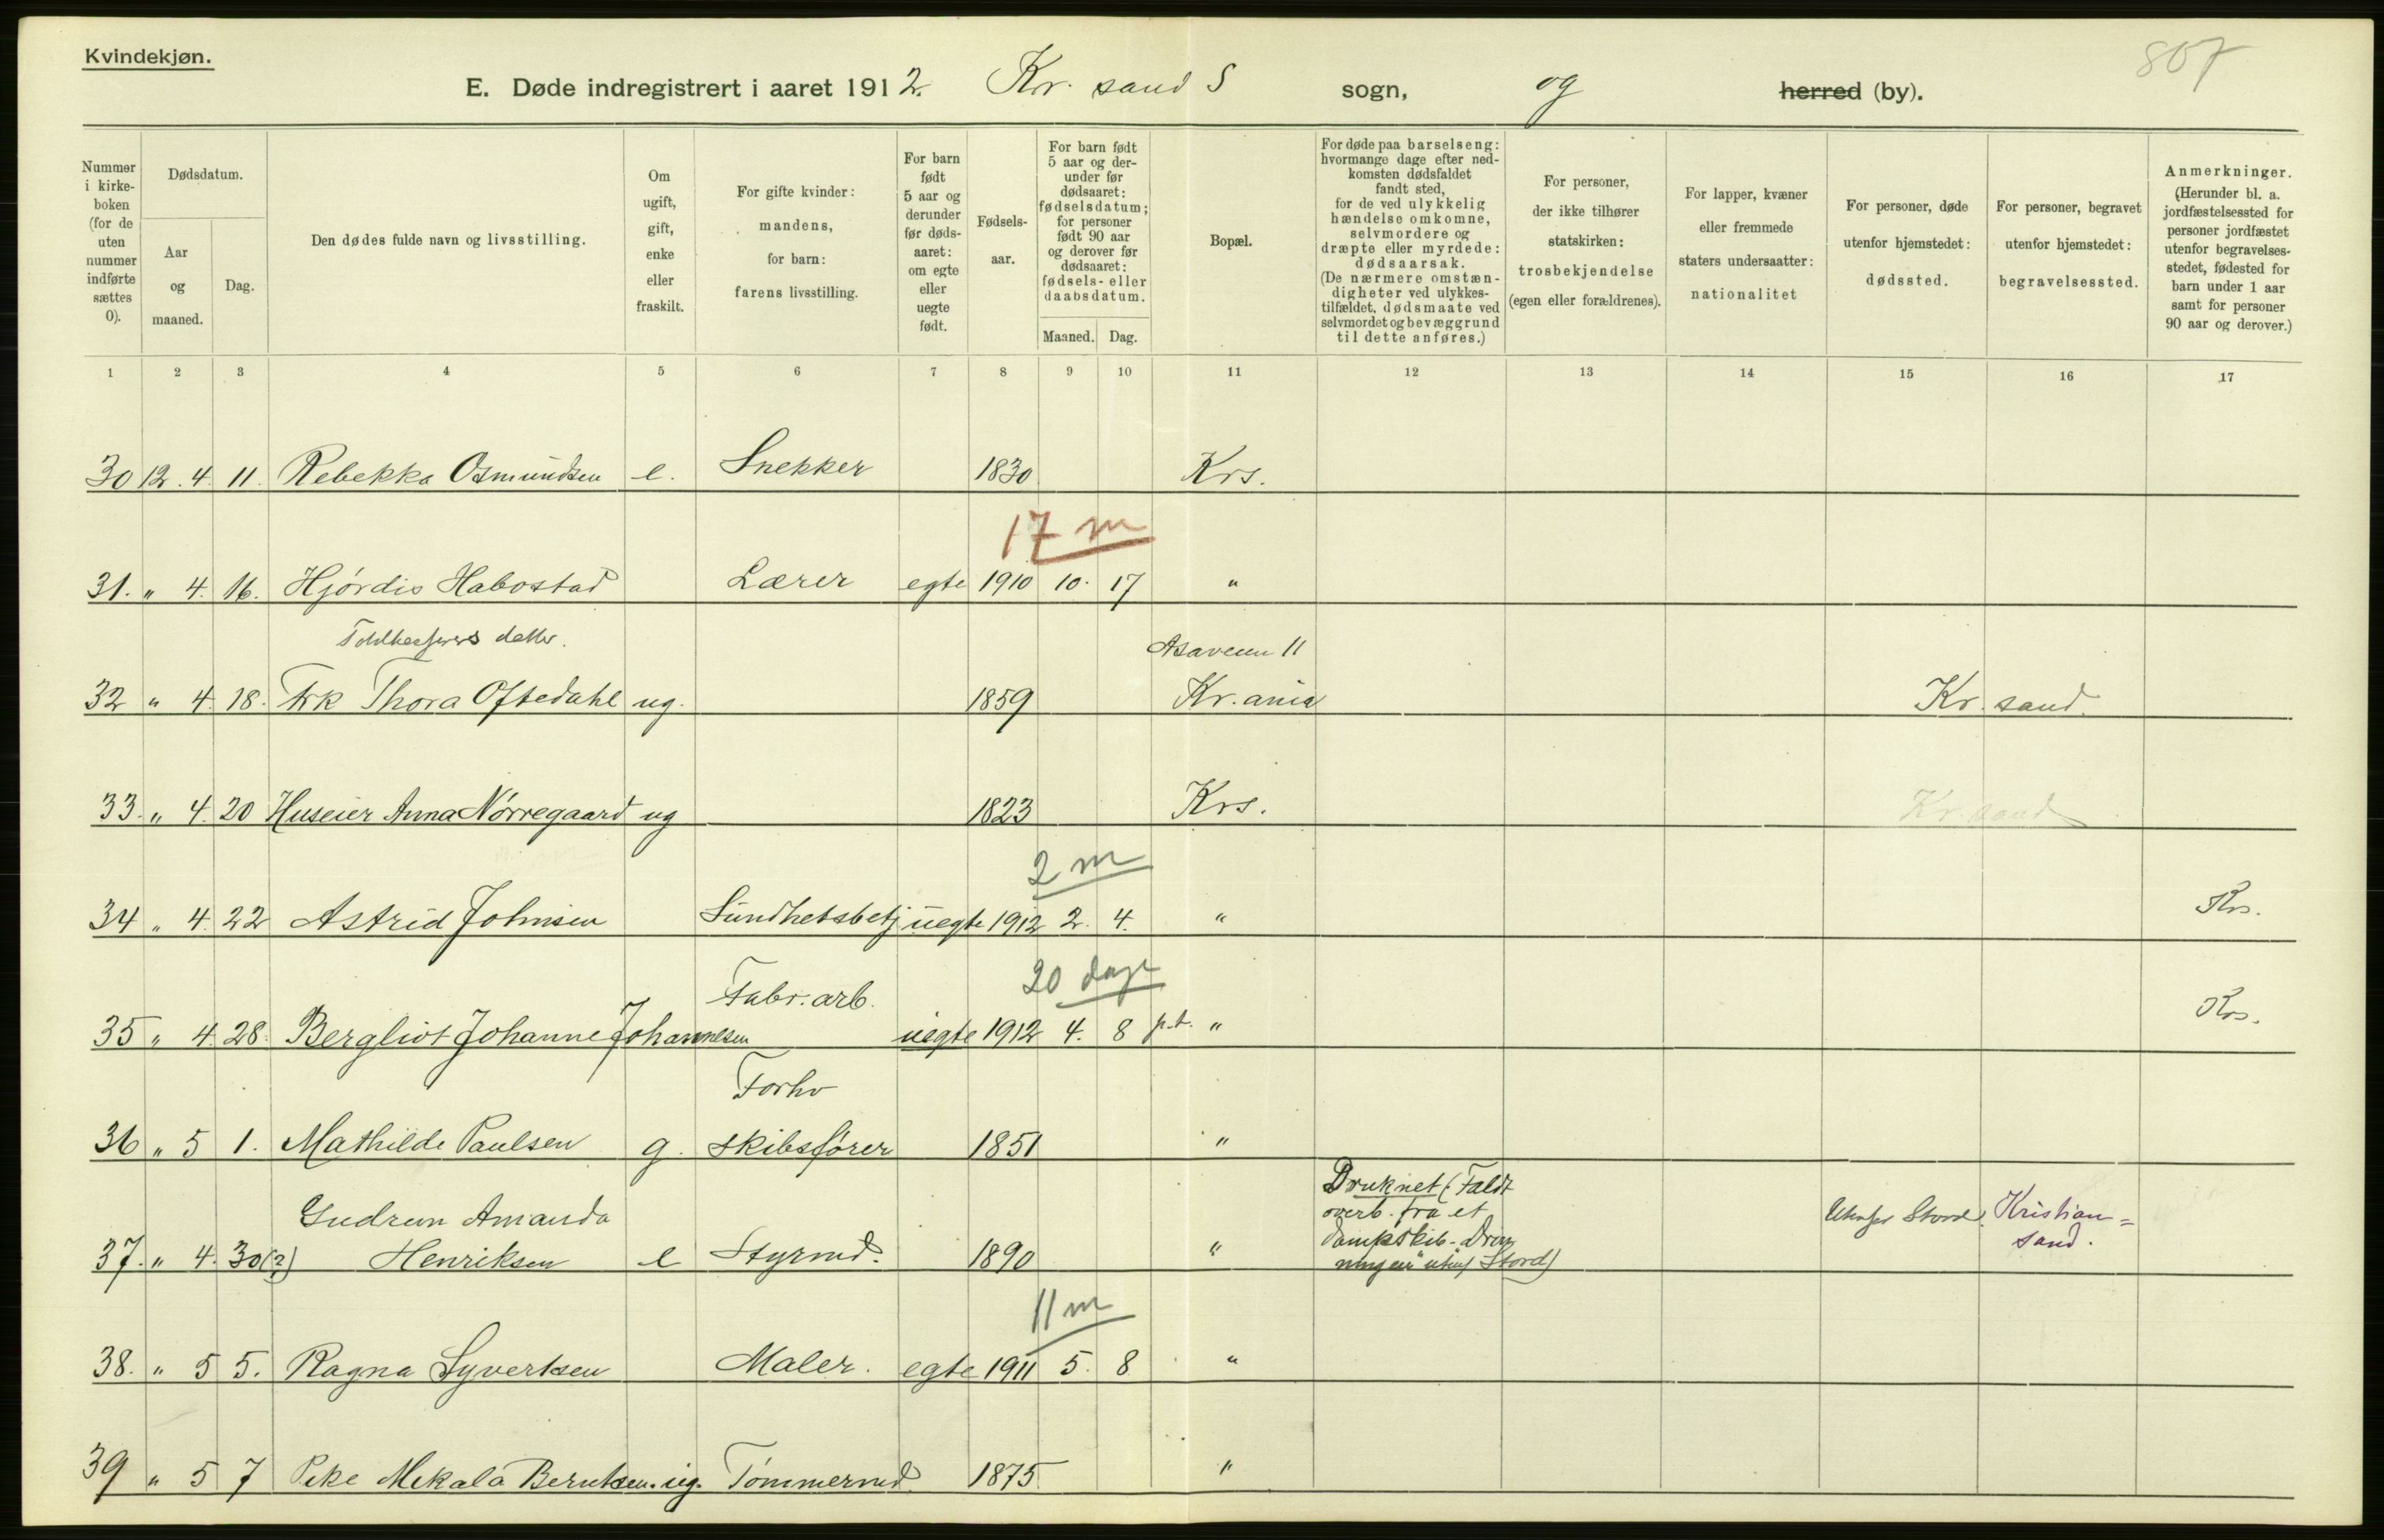 Kvindekjøn.
807
E. Døde indregistrert i aaret 1912. Kr. sand S sogn, og herred (by).
Nummer i kirke-boken (for de uten nummer indførte sættes 0).
Dødsdatum.
Aar og maaned.
Dag.
Den dødes fulde navn og livsstilling.
Om ugift, gift, enke eller fraskilt.
For gifte kvinder: mandens, for barn: farens livsstilling.
For barn født 5 aar og derunder før døds-aaret: om egte eller uegte født.
Fødsels-aar.
For barn født 5 aar og der-under før dødsaaret: fødselsdatum; for personer født 90 aar og derover før dødsaaret: fødsels- eller daabsdatum.
Maaned. Dag.
Bopæl.
For døde paa barselseng: hvormange dage efter ned-komsten dødsfaldet fandt sted, for de ved ulykkelig hændelse omkomne, selvmordere og dræpte eller myrdede: dødsaarsak. (De nærmere omstæn-digheter ved ulykkes-tilfældet, dødsmaate ved selvmordet og bevæggrund til dette anføres.)
For personer, der ikke tilhører statskirken: trosbekjendelse (egen eller forældrenes).
For lapper, kvæner eller fremmede staters undersaatter: nationalitet
For personer, døde utenfor hjemstedet: dødssted.
For personer, begravet utenfor hjemstedet: begravelsessted.
Anmerkninger. (Herunder bl. a. jordfæstelsessted for personer jordfæstet utenfor begravelses-stedet, fødested for barn under 1 aar samt for personer 90 aar og derover.)
1 2 3 4 5 6 7 8 9 10 11 12 13 14 15 16 17
30 12. 4. 11. Rebekka Osmundsen e. Snekker 1830 Krs.
17 m
31. " 4. 16. Hjørdis Habostad Lærer egte 1910 10. 17 "
datter. Asaveien 11
32 " 4. 18. Frk Thora Oftedahl ug. 1859 Kr.ania Kr. sand.
33. " 4. 20 Huseier Anna Nørregaard ug 1823 Krs. Kr. sand
2 m
34 " 4. 22 Astrid Johnsen Sundhetsbetj uegte 1912 2. 4. " Krs.
Fabr. arb. 20 dage
35 " 4. 28. Bergliot Johanne Johannesen uegte 1912 4. 8 p.t. " Krs.
Forhv
36 " 5 1. Mathilde Paulsen g. skibsfører 1851 "
Druknet (Faldt
Gudrun Amanda overb. fra et Utenfor Stord. Kristian=
37. " 4. 30(?) Henriksen e Styrmd. 1890 " Dampskib-Dron sand.
ningen" utenf Stord)
11 m
38. " 5 5. Ragna Syvertsen Maler. egte 1911 5. 8 "
39 " 5 7 Pike Mekala Berntsen. ug. Tømmermd. 1875. "